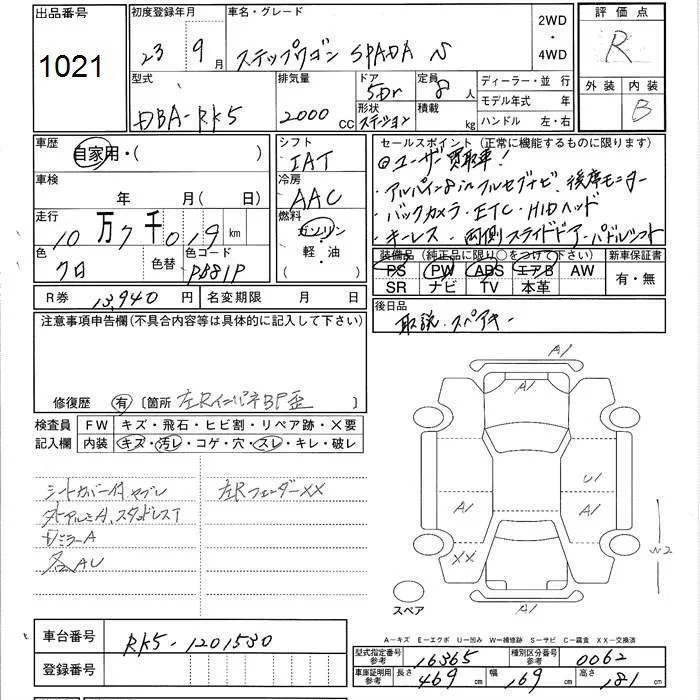 出品番号 初度登録年月 車名・グレード 2WD・4WD 評価点
1021 23 9月 ステップワゴン SPADA S R
型式 排気量 ドア 定員 ディーラー・並行 外装 内装
DBA-RK5 2000cc 5Dr 8人 モデル年式 年 B
形状 積載 ハンドル 左・右
ステーション kg
車歴 シフト セールスポイント(正常に機能するものに限ります)
自家用・( ) IAT ◎ユーザー買取車!
車検 冷房 ・アルパイン8inフルセグナビ・後席モニター
年 月(日) AAC ・バックカメラ・ETC・HIDヘッド
走行 燃料 ・キーレス・両側スライドドア・パドルシフト
10万7千019km ガソリン・軽・油
色 色替 色コード 装備品(純正品に限り○をつけて下さい) 新車保証書
クロ P881P PS PW ABS エアB AW 有・無
SR ナビ TV 本革
R券 13,940円 名変期限 月 日 後日品
取説・スペアキー
注意事項申告欄(不具合内容等は具体的に記入して下さい)
修復歴 有 [箇所 左RインパネBP歪 ]
検査員 FW キズ・飛石・ヒビ割・リペア跡・X要
記入欄 内装 キズ・汚レ・コゲ・穴・スレ・キレ・破レ
シートカバー付 ヤブレ 左RフェンダーXX
外アルミA、スタッドレスT
DミラーA
各AU
A1
A1
U1
A1 A1
XX W2
A1
A1
スペア
A-キズ E-エクボ U-凹み W-補修跡 S-サビ C-腐食 XX-交換済
車台番号 RK5-1201530
登録番号
型式指定番号 参考 16365 種別区分番号 参考 0062
車庫証明用 参考 長さ 469cm 幅 169cm 高さ 181cm